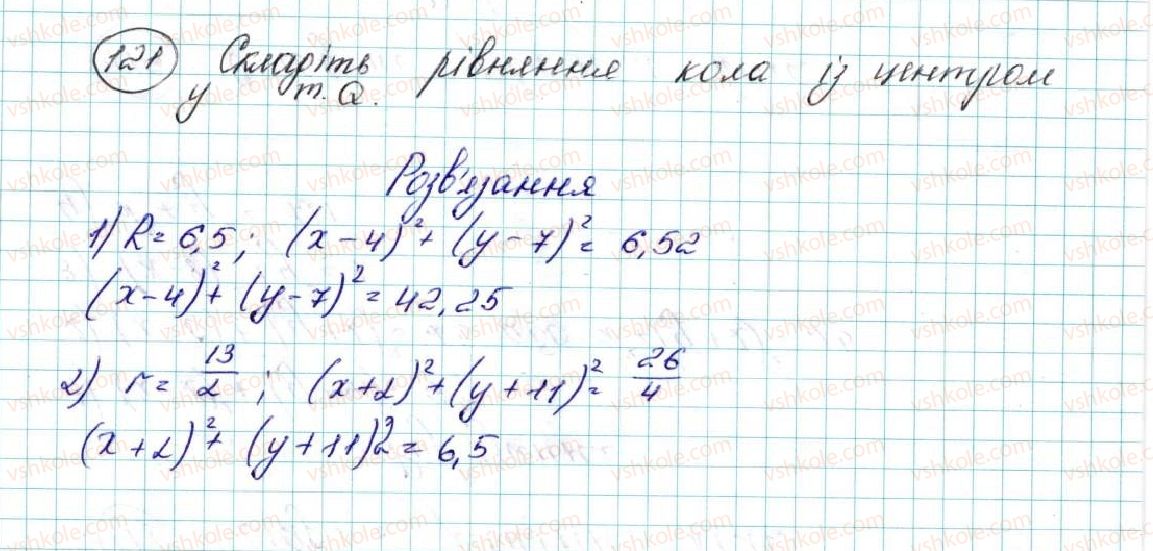 121 Складіть рівняння кола із центром
у т. Q.
Розв'язання
1) R = 6,5; (x - 4)² + (y - 7)² = 6,52
(x - 4)² + (y - 7)² = 42,25
2) r = 13/2; (x + 2)² + (y + 11)² = 26/4
(x + 2)² + (y + 11)²2 = 6,5